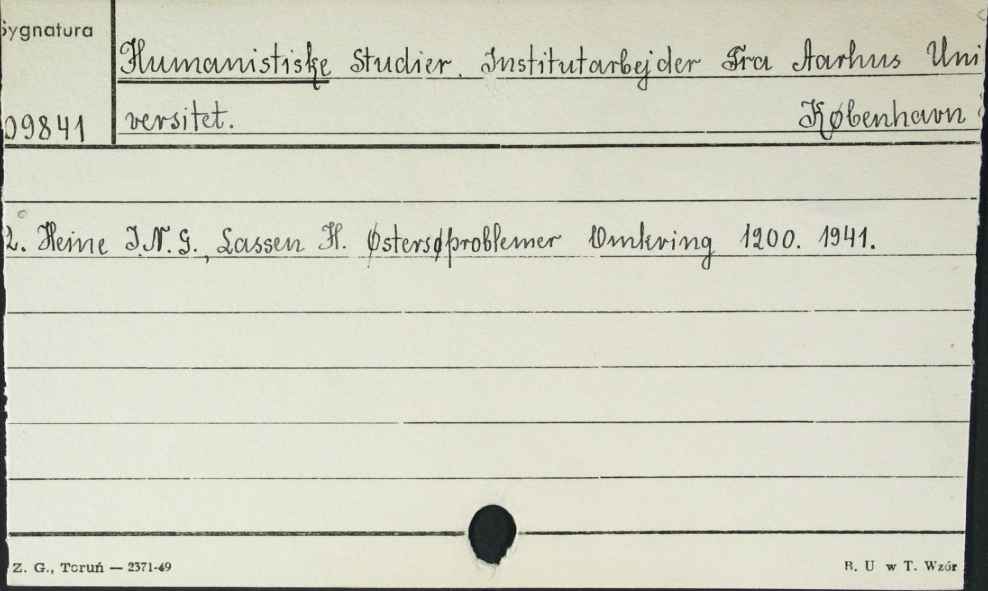 Sygnatura
Humanistiske Studier. Institutarbejder Fra Aarhus Uni
09841 versitet. København
2. Heine J.N.G., Lassen H. Østersøproblemer Omkring 1200. 1941.
Z. G., Toruń — 2371-49 B. U w T. Wzór